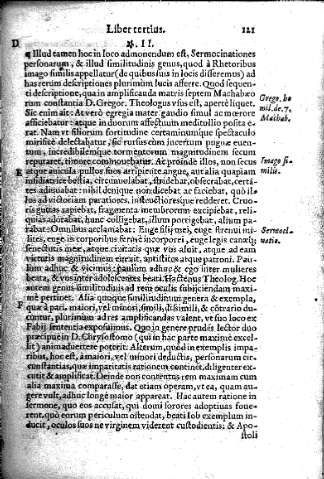 Liber tertius. 121
D §. II.
Illud tamen hoc in loco admonendum est, Sermocinationes
personarum, & illud similitudinis genus, quod à Rhetoribus
imago similis appellatur (de quibus suis in locis differemus) ad
has rerum descriptiones plurimùm lucis afferre. Quod sequen-
ti descriptione, qua in amplificanda matris septem Machabæo
rum constantia D. Gregor. Theologus vsus est, apertè liquet.
Gregor. ho
Sic enim ait: At verò egregia mater gaudio simul ac mœrore
Machab.
afficiebatur: atque in duorum affectuum meditullio posita e-
rat. Nam vt filiorum fortitudine certaminumque spectaculo
mirificè delectabatur, sic rursus eum incertum pugnæ euen-
tum, incredibilemque tormentorum magnitudinem secum
reputaret, timore commouebatur. Ac proinde illos, non secus
Imago si-
E atque auicula pullos suos arripiente angue, aut alia quapiam
milis.
insidiatrice bestia, circumuolabat, stridebat, obsecrabat, certa-
tes adiuuabat: nihil denique non dicebat ac faciebat, quò il-
los ad victoriam paratiores, instructioresque redderet. Cruo-
ris guttas rapiebat, fragmenta membrorum excipiebat, reli-
quias adorabat, hunc colligebat, illum porrigebat, alium pa-
rabat: Omnibus acclamabat: Euge filij mei, euge strenui mi-
Sermoci-
lites, euge in corporibus fermè incorporei, euge legis canæque
natio.
senectutis meæ, atque ciuitatis quæ vos aluit, atque ad eam
virtutis magnitudinem euexit, antistites atque patroni. Pau-
lùm adhuc & vicimus: paulùm adhuc & ego inter mulieres
beata, & vos inter adolescentes beati. Hactenus Theolog. Hoc
autem genus similitudinis ad rem oculis subijciendam maxi-
mè pertinet. Alia quoque similitudinum genera & exempla,
F quæ à pari, maiori, vel minori, simili, dissimili, & côtrario du-
cuntur, plurimùm ad res amplificandas valent, vt suo loco ex
Fabij sententia exposuimus. Quo in genere prudês lector duo
præcipuè in D. Chrysostomo (qui in hac parte maximè excel-
lit) animaduertere poterit. Alterum, quòd in exemplis impa-
ribus, hoc est, à maiori, vel minori deductis, personarum cir-
constantias, quæ imparitatis rationem continêt, diligenter ex-
cutit & amplificat. Deinde non contentus rem maximam cum
alia maxima comparasse, dat etiam operam, vt ea, quam au-
gere vult, adhuc longè maior appareat. Hac autem ratione in
sermone, quo eos accusat, qui domi sorores adoptiuas foue-
rent, quò eorum periculum ostendat, beati Iob exemplum in-
ducit, oculos suos ne virginem viderent custodientis; & Apo-
stoli